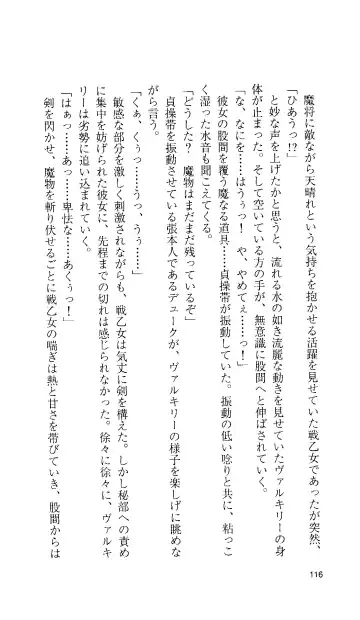 魔将に敵ながら天晴れという気持ちを抱かせる活躍を見せていた戦乙女であったが突然、
「ひあうっ!?」
と妙な声を上げたかと思うと、流れる水の如き流麗な動きを見せていたヴァルキリーの身
体が止まった。そして空いている方の手が、無意識に股間へと伸ばされていく。
「な、なにを……はうぅっ！　や、やめてぇ……っ！」
彼女の股間を覆う魔なる道具……貞操帯が振動していた。振動の低い唸りと共に、粘っこ
く湿った水音も聞こえてくる。
「どうした？　魔物はまだまだ残っているぞ」
貞操帯を振動させている張本人であるデュークが、ヴァルキリーの様子を楽しげに眺めな
がら言う。
「くぁ、くぅっ……うっ、うぅ……」
敏感な部分を激しく刺激されながらも、戦乙女は気丈に剣を構えた。しかし秘部への責め
に集中を妨げられた彼女に、先程までの切れは感じられなかった。徐々に徐々に、ヴァルキ
リーは劣勢に追い込まれていく。
「はぁっ……あっ……卑怯な……あくぅっ！」
剣を閃かせ、魔物を斬り伏せるごとに戦乙女の喘ぎは熱と甘さを帯びていき、股間からは
116